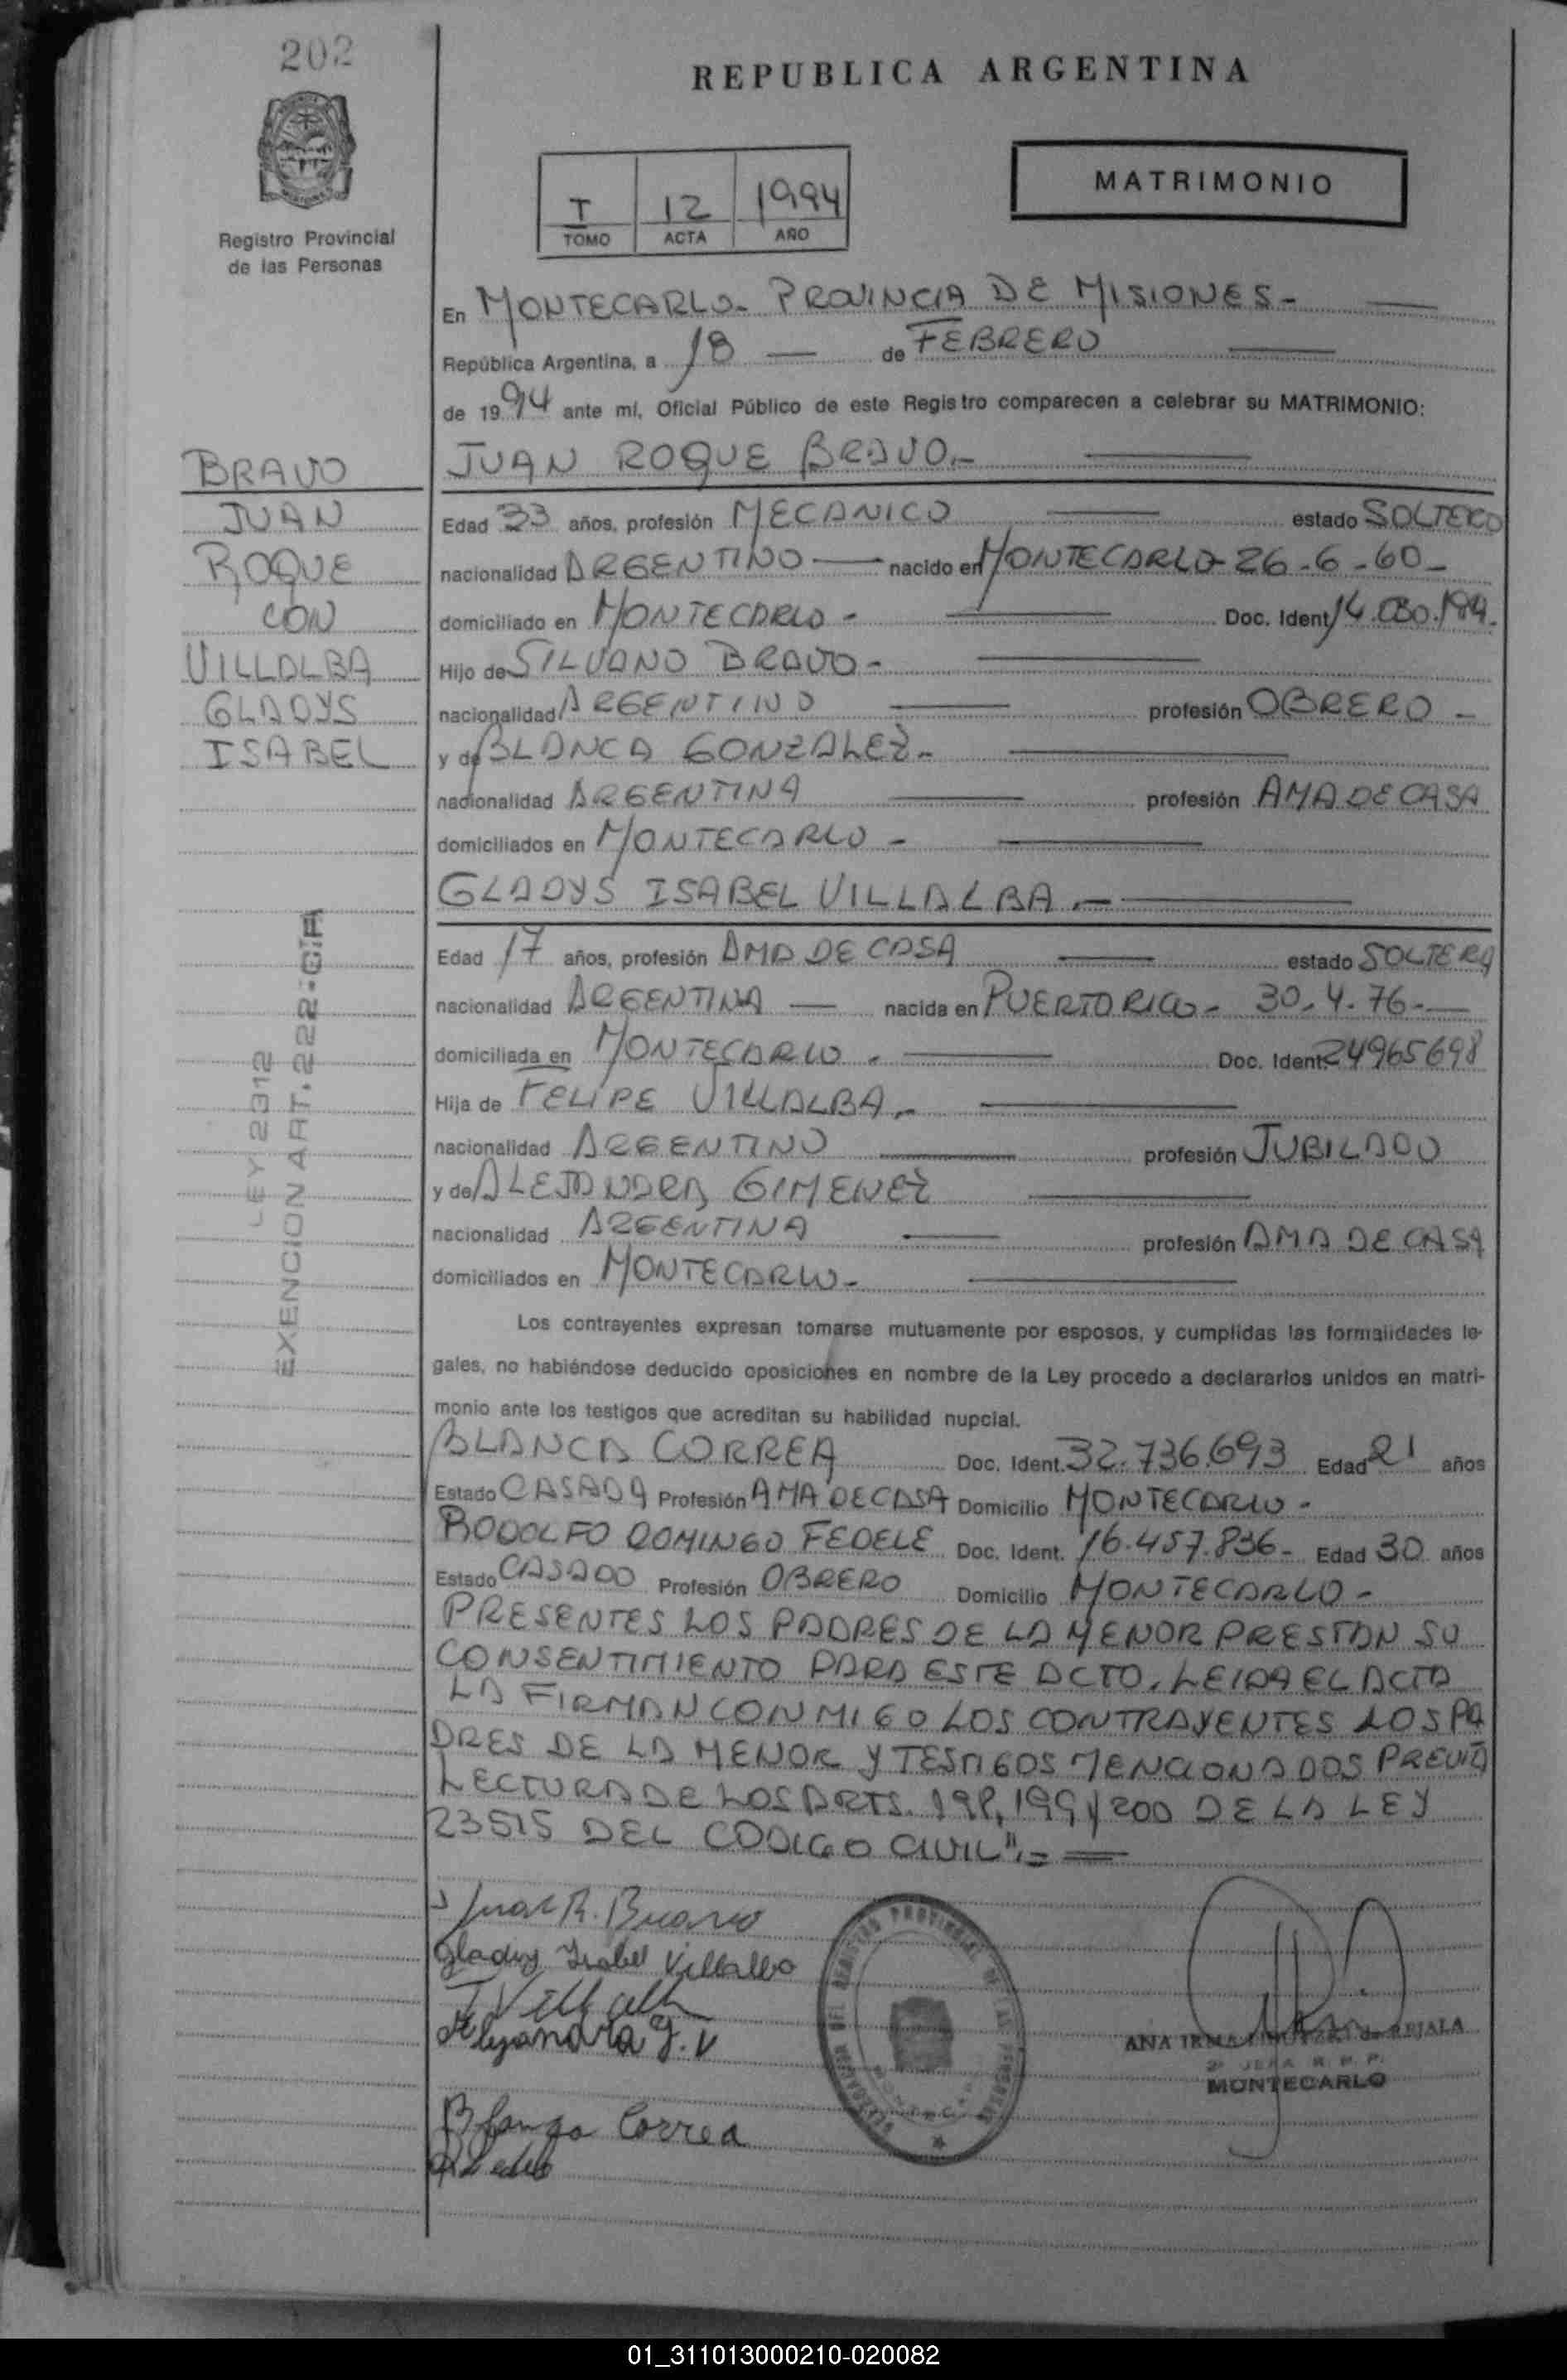 202
REPUBLICA ARGENTINA
Registro Provincial
de las Personas
I 12 1994
TOMO ACTA AÑO
MATRIMONIO
En MONTECARLO- PROVINCIA DE MISIONES-
República Argentina, a 18 — de FEBRERO
de 1994 ante mí, Oficial Público de este Registro comparecen a celebrar su MATRIMONIO:
BRAVO
JUAN
ROQUE
CON
VILLALBA
GLADYS
ISABEL
LEY 2312
EXENCION ART. 22
JUAN ROQUE BRAVO.-
Edad 33 años, profesión MECANICO estado SOLTERO
nacionalidad ARGENTINO — nacido en MONTECARLO- 26-6-60-
domiciliado en MONTECARLO - Doc. Ident. 14.
Hijo de SILVANO BRAVO-
nacionalidad ARGENTINO profesión OBRERO -
y de BLANCA GONZALEZ-
nacionalidad ARGENTINA profesión AMA DE CASA
domiciliados en MONTECARLO -
GLADYS ISABEL VILLALBA.-
Edad 17 años, profesión AMA DE CASA estado SOLTERA
nacionalidad ARGENTINA — nacida en PUERTO RICO- 30-4-76-
domiciliada en MONTECARLO - Doc. Ident. 24965698
Hija de FELIPE VILLALBA.-
nacionalidad ARGENTINO profesión JUBILADO
y de ALEJANDRA GIMENEZ
nacionalidad ARGENTINA profesión AMA DE CASA
domiciliados en MONTECARLO-
Los contrayentes expresan tomarse mutuamente por esposos, y cumplidas las formalidades le-
gales, no habiéndose deducido oposiciones en nombre de la Ley procedo a declararlos unidos en matri-
monio ante los testigos que acreditan su habilidad nupcial.
BLANCA CORREA Doc. Ident. 32.736.693 Edad 21 años
Estado CASADA Profesión AMA DE CASA Domicilio MONTECARLO-
RODOLFO DOMINGO FEDELE Doc. Ident. 16.457.836- Edad 30 años
Estado CASADO Profesión OBRERO Domicilio MONTECARLO-
PRESENTES LOS PADRES DE LA MENOR PRESTAN SU
CONSENTIMIENTO PARA ESTE ACTO. LEIDA EL ACTA
LA FIRMAN CONMIGO LOS CONTRAYENTES LOS PA
DRES DE LA MENOR Y TESTIGOS MENCIONADOS PREVIA
LECTURA DE LOS ARTS. 198, 199 y 200 DE LA LEY
23515 DEL CODIGO CIVIL".=
Juan R. Bravo
Gladys Isabel Villalba
Alejandra G. V
Blanca Correa
ANA IRMA
2ª JEFA R. P. P.
MONTECARLO
01_311013000210-020082